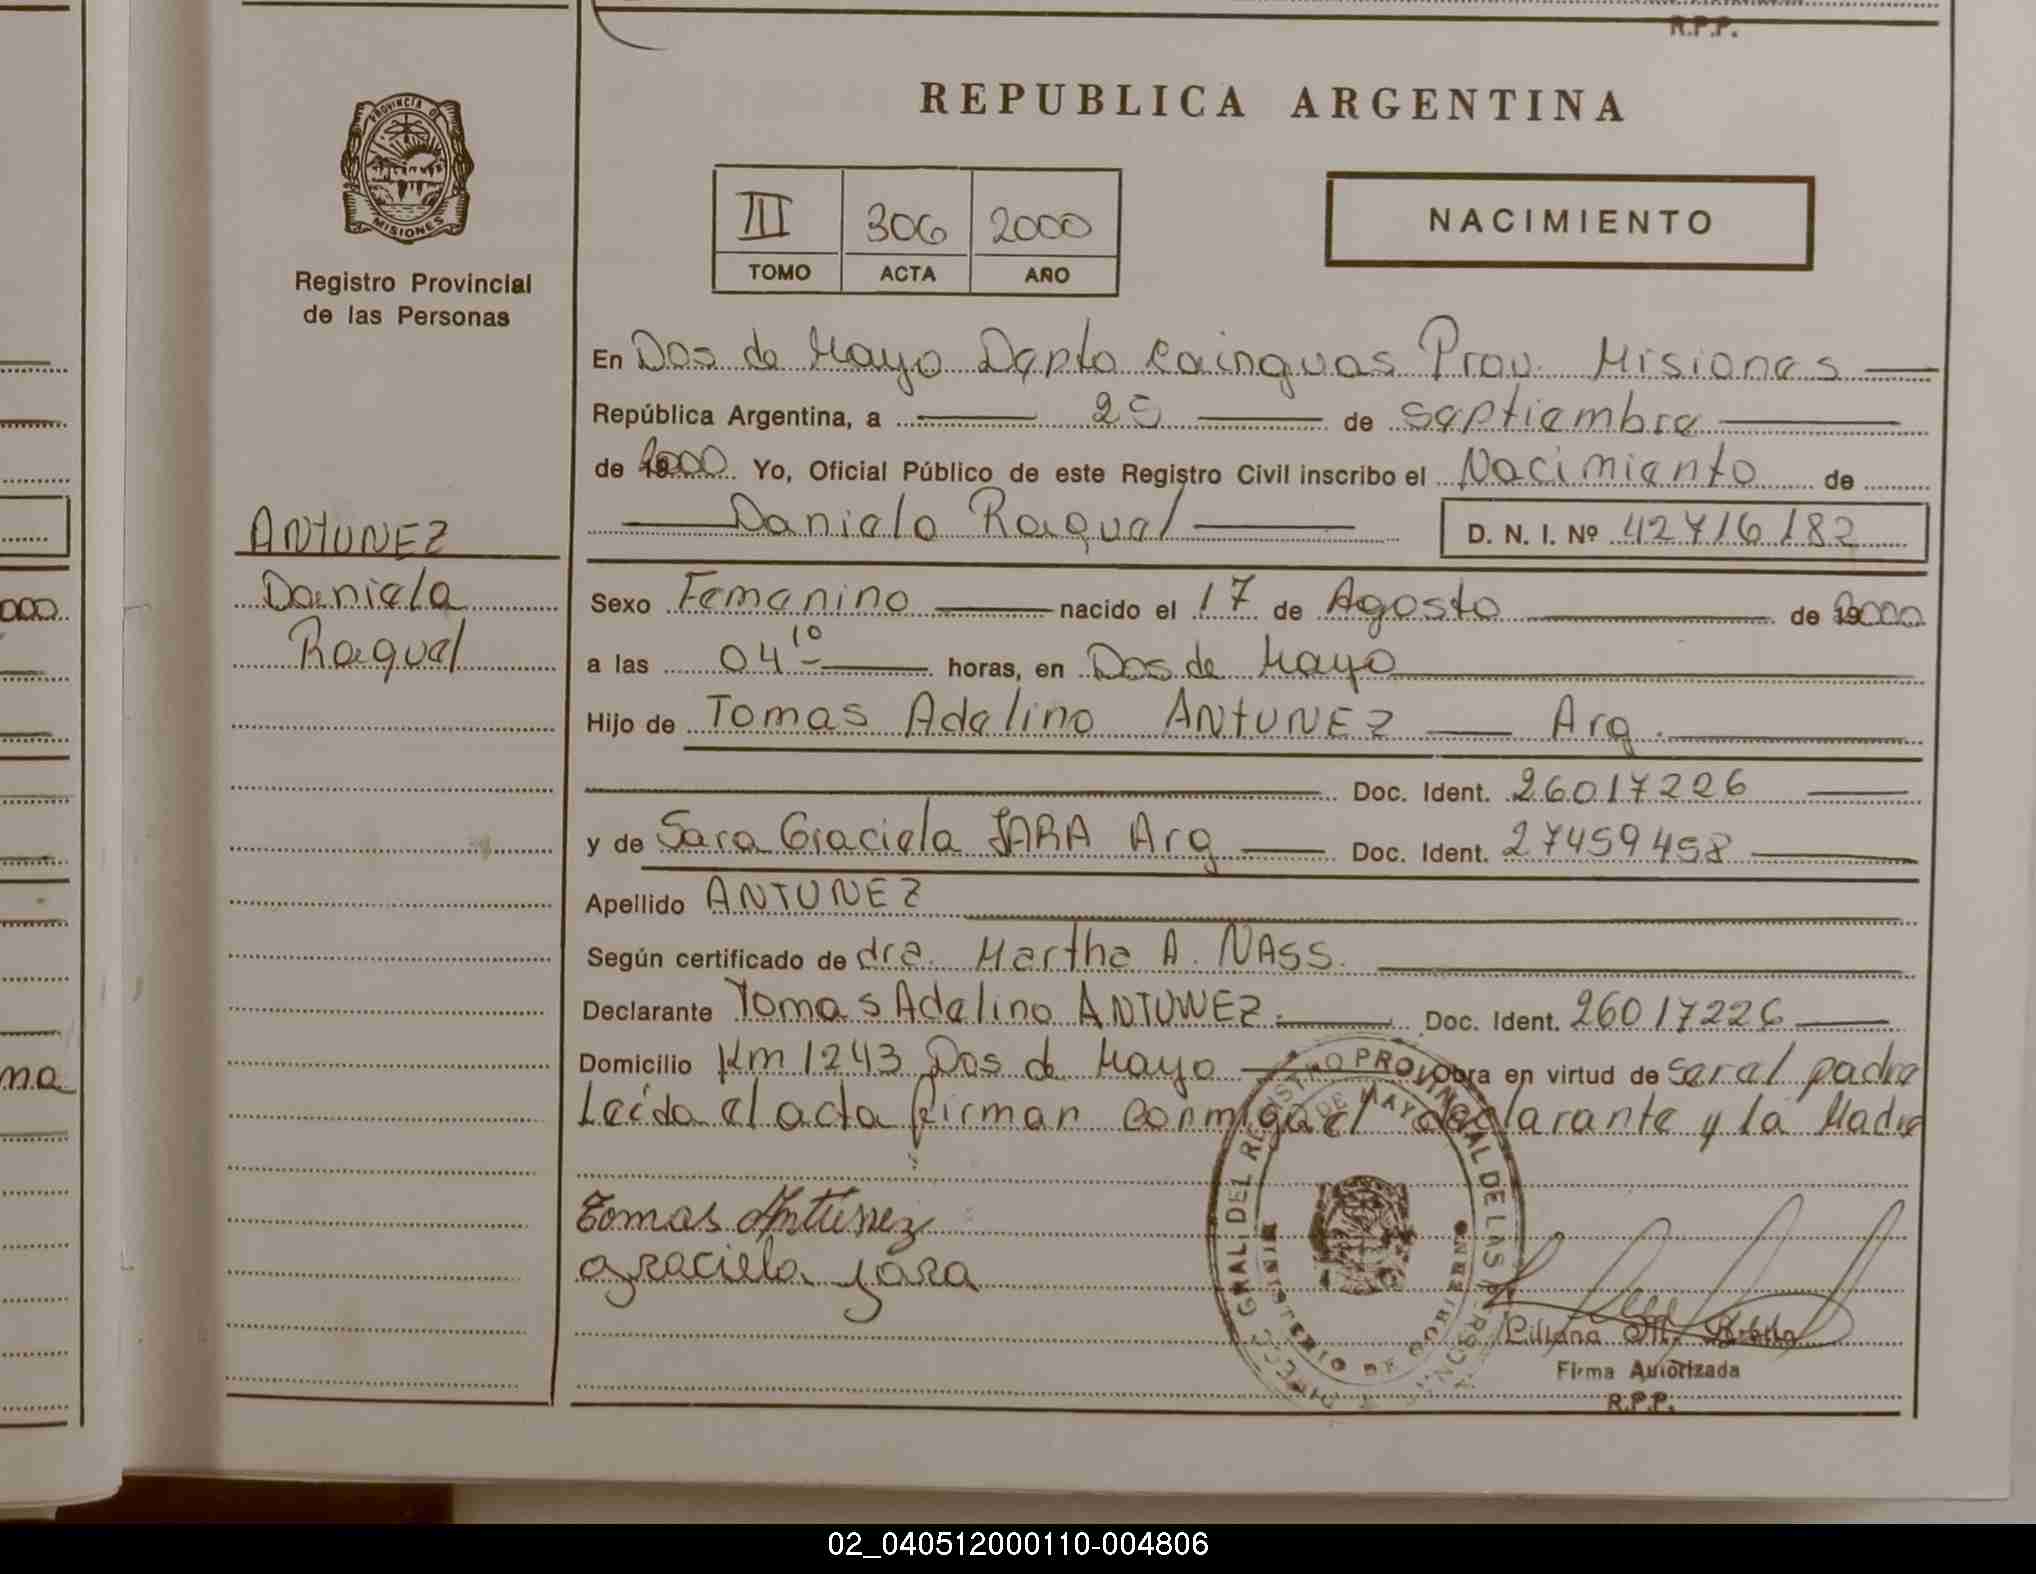 R.P.P.
PROVINCIA DE
MISIONES
Registro Provincial
de las Personas
ANTUNEZ
Daniela
Raquel
000
na
REPUBLICA ARGENTINA
III 306 2000
TOMO ACTA AÑO
NACIMIENTO
En Dos de Mayo Depto Cainguas Prov. Misiones
República Argentina, a 25 de septiembre
de 2000 Yo, Oficial Público de este Registro Civil inscribo el Nacimiento de
Daniela Raquel D. N. I. Nº 42716182
Sexo Femenino nacido el 17 de Agosto de 2000
a las 04 10 horas, en Dos de Mayo
Hijo de Tomas Adelino ANTUNEZ Arg.
Doc. Ident. 26017226
y de Sara Graciela JARA Arg Doc. Ident. 27459458
Apellido ANTUNEZ
Según certificado de dra. Martha A. NASS.
Declarante Tomas Adelino ANTUNEZ Doc. Ident. 26017226
Domicilio Km 1243 Dos de Mayo Obra en virtud de ser el padre
Leída el acta firman conmigo el declarante y la Madre
Tomas Antunez
Graciela Jara
REGISTRO PROVINCIAL DE LAS PERSONAS
DE MAYO
MINISTERIO DE GOBIERNO
Liliana M.
Firma Autorizada
R.P.P.
02_040512000110-004806